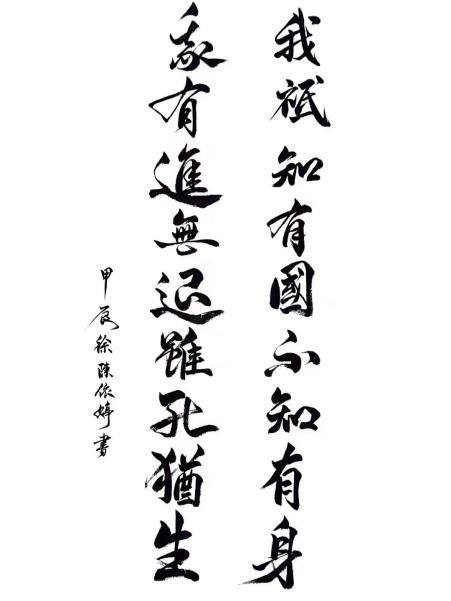 我祇知有國不知有身
我有進無退雖死猶生
甲辰徐陳依婷書